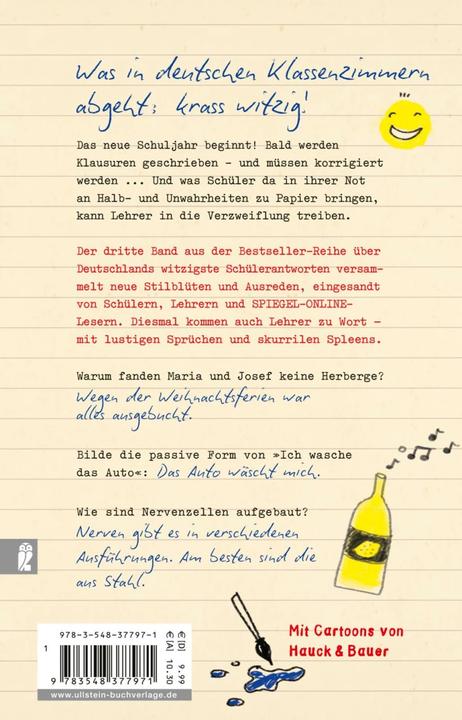 Was in deutschen Klassenzimmern
abgeht: krass witzig!
Das neue Schuljahr beginnt! Bald werden
Klausuren geschrieben – und müssen korrigiert
werden ... Und was Schüler da in ihrer Not
an Halb- und Unwahrheiten zu Papier bringen,
kann Lehrer in die Verzweiflung treiben.
Der dritte Band aus der Bestseller-Reihe über
Deutschlands witzigste Schülerantworten versam-
melt neue Stilblüten und Ausreden, eingesandt
von Schülern, Lehrern und SPIEGEL-ONLINE-
Lesern. Diesmal kommen auch Lehrer zu Wort –
mit lustigen Sprüchen und skurrilen Spleens.
Warum fanden Maria und Josef keine Herberge?
Wegen der Weihnachtsferien war
alles ausgebucht.
Bilde die passive Form von »Ich wasche
das Auto«: Das Auto wäscht mich.
Wie sind Nervenzellen aufgebaut?
Nerven gibt es in verschiedenen
Ausführungen. Am besten sind die
aus Stahl.
Mit Cartoons von
Hauck & Bauer
978-3-548-37797-1
1
9 783548 377971
€ [D] 9,99
€ [A] 10,30
www.ullstein-buchverlage.de